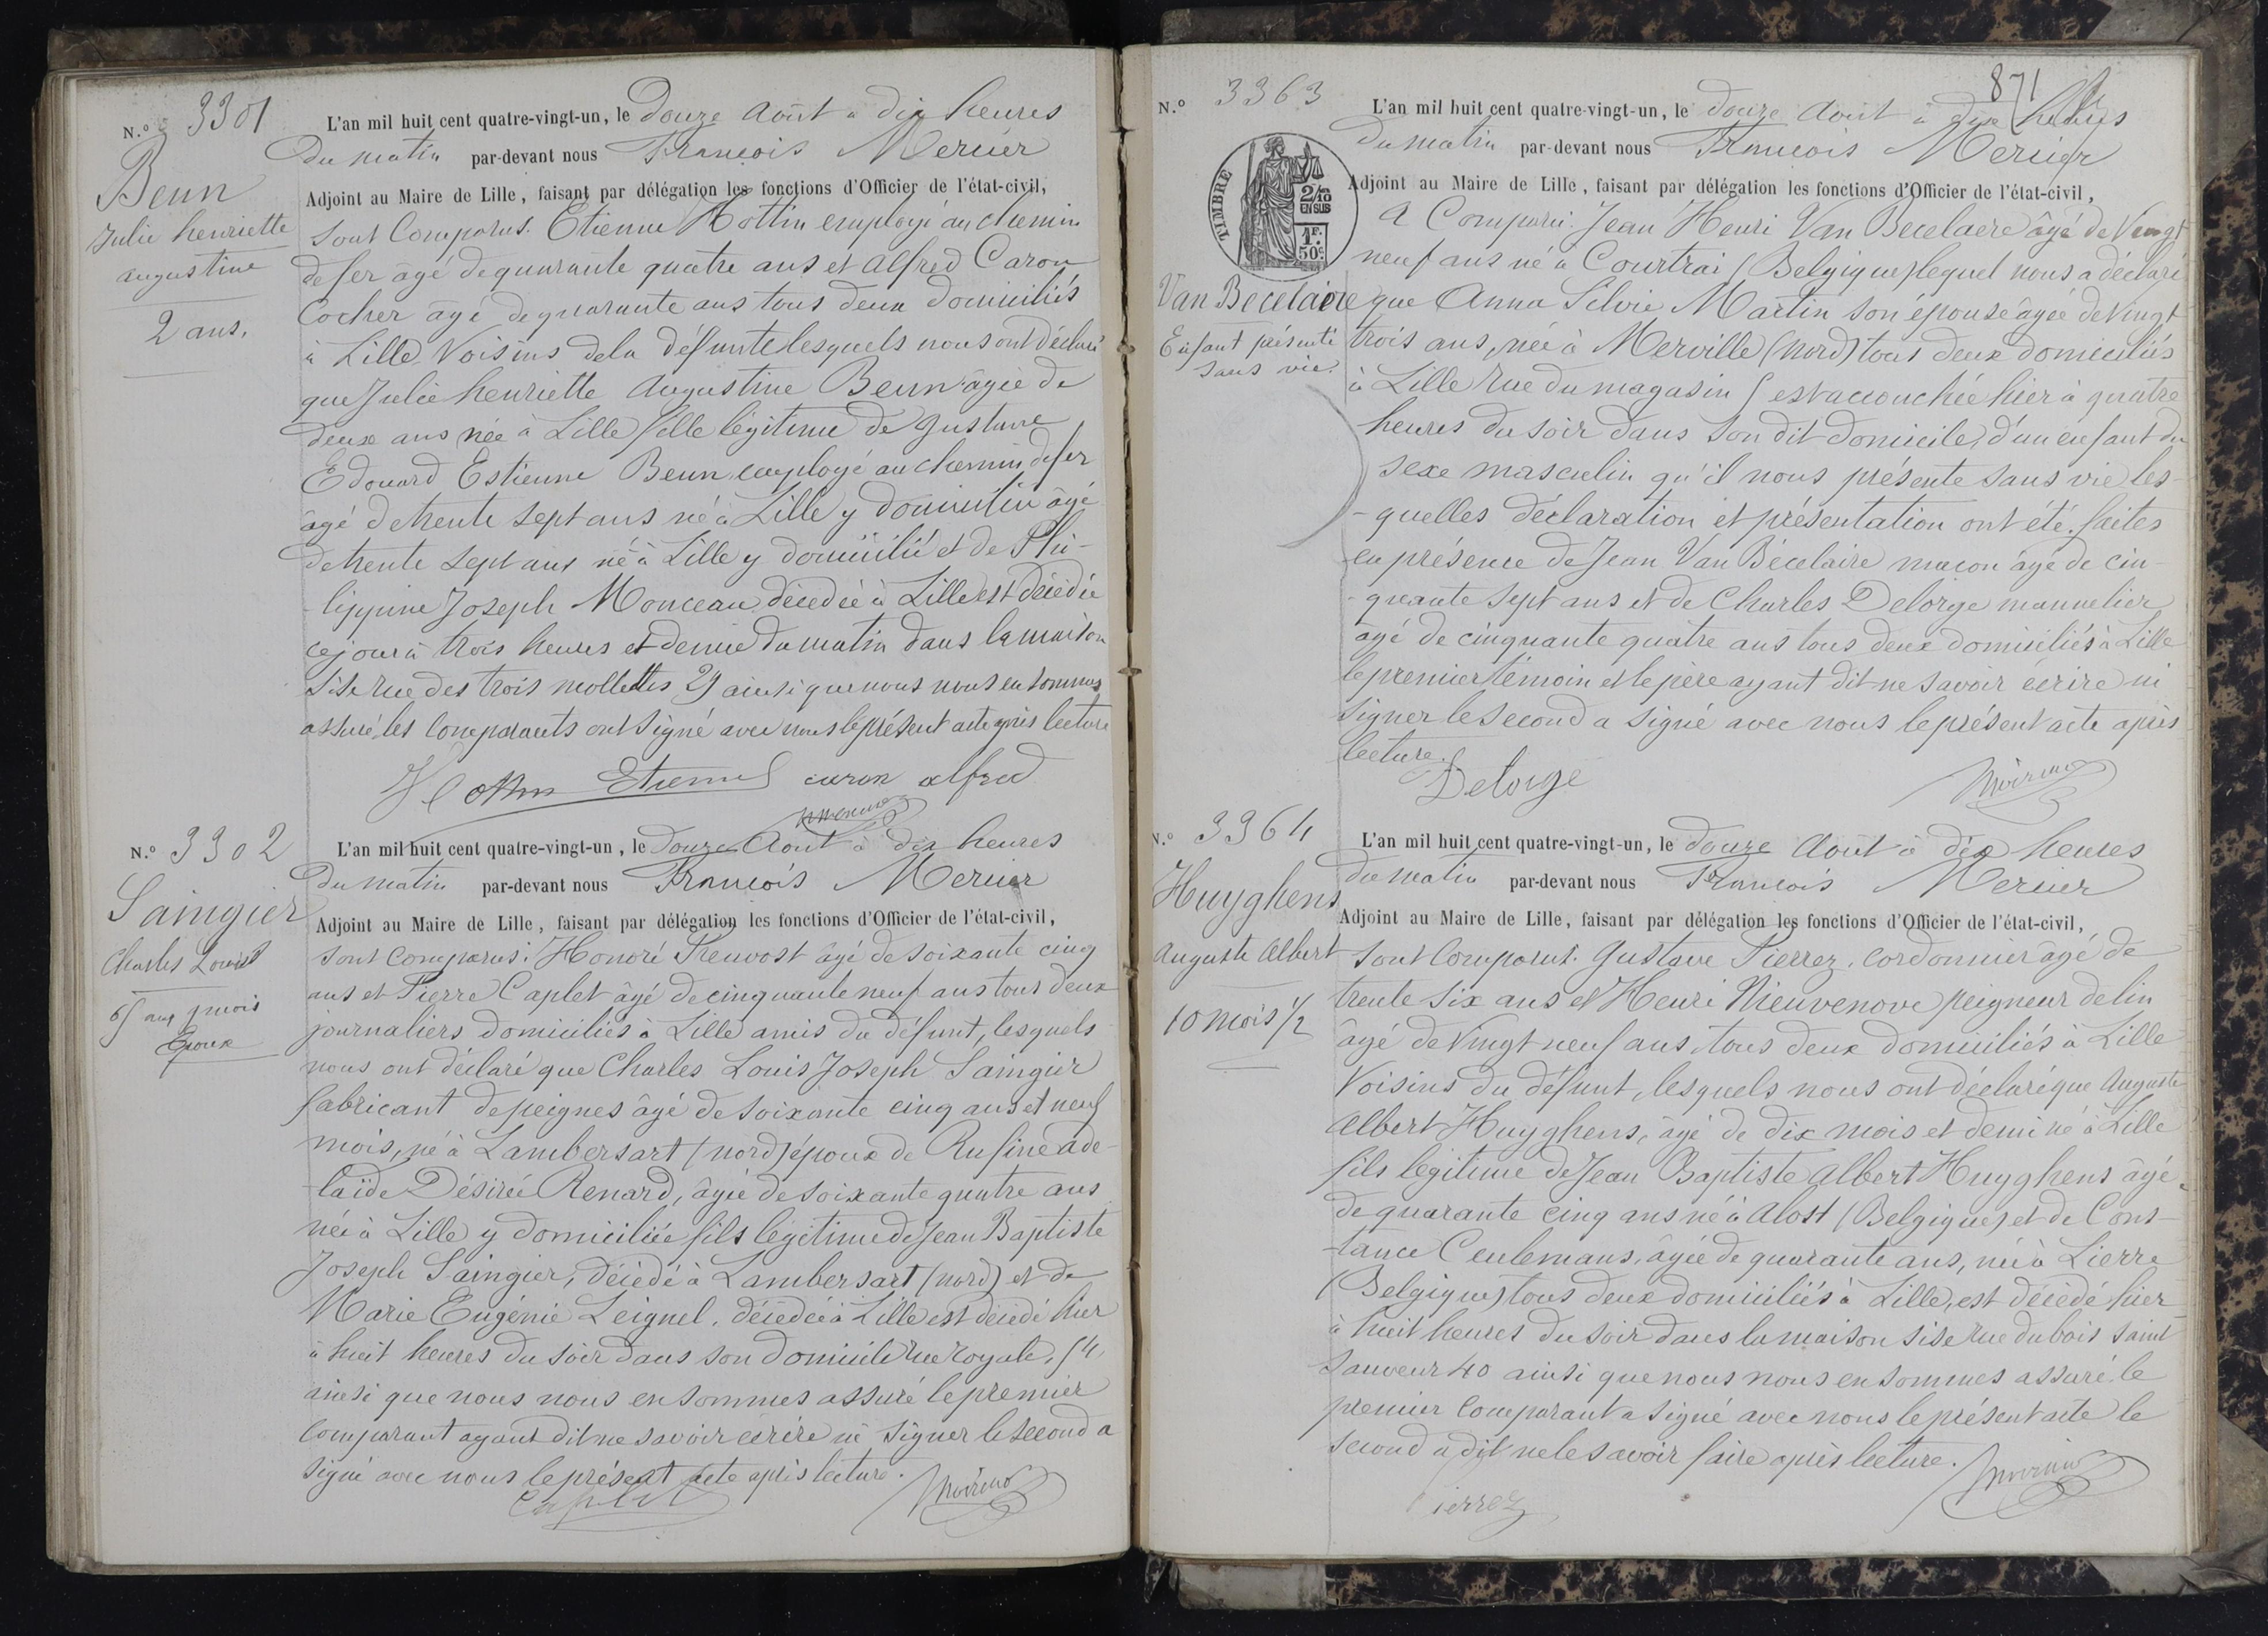 N.º 3301
Benn
Julie henriette
augustine
2 ans.
L'an mil huit cent quatre-vingt-un, le douze Août à dix heures
du matin par-devant nous François Mercier
Adjoint au Maire de Lille, faisant par délégation les fonctions d'Officier de l'état-civil,
sont Comparus. Etienne Hottin employé au chemin
de fer âgé de quarante quatre ans et Alfred Caron
Cocher âgé de quarante ans tous deux domiciliés
à Lille Voisins de la défunte lesquels nous ont déclaré
que Julie henriette Augustine Benn âgée de
deux ans née à Lille fille légitime de Gustave
Edouard Estienne Benn employé au chemin de fer
âgé de trente sept ans né à Lille y domicilié âgé
de trente sept ans né à Lille y domicilié et de Phi-
-lippine Joseph Monceau décédée à Lille est décédée
ce jour à trois heures et demie du matin dans la maison
sise rue des trois mollettes 29 ainsi que nous nous en sommes
assuré, les comparants ont signé avec nous le présent acte après lecture
Hottin Etienne caron alfred
N.º 3302
Saingier
Charles Louis
65 ans 9 mois
Epoux
L'an mil huit cent quatre-vingt-un, le douze Août à dix heures
du matin par-devant nous François Mercier
Adjoint au Maire de Lille, faisant par délégation les fonctions d'Officier de l'état-civil,
sont comparus: Honoré Prenvost âgé de soixante cinq
ans et Pierre Caplet âgé de cinquante neuf ans tous deux
journaliers domiciliés à Lille amis du défunt, lesquels
nous ont déclaré que Charles Louis Joseph Saingier
fabricant de peignes âgé de soixante cinq ans et neuf
mois, né à Lambersart (nord) époux de Rufine Adé-
-laïde Désirée Renard, âgée de soixante quatre ans
née à Lille y domiciliée fils légitime de Jean Baptiste
Joseph Saingier, décédé à Lambersart (nord) et de
Marie Eugénie Leignel, décédée à Lille est décédé hier
à huit heures du soir dans son domicile rue royale, 54,
ainsi que nous nous en sommes assuré le premier
comparant ayant dit ne savoir écrire ni signer le second a
signé avec nous le présent acte après lecture.
Caplet
871
N.º 3363
TIMBRE
2/10
EN SUS
1F.
50c
Van Becelaere
Enfant présenté
sans vie.
L'an mil huit cent quatre-vingt-un, le douze Août à dix heures
du matin par-devant nous François Mercier
Adjoint au Maire de Lille, faisant par délégation les fonctions d'Officier de l'état-civil,
a Comparu: Jean Henri Van Becelaere âgé de Vingt
neuf ans né à Courtrai (Belgique) lequel nous a déclaré
que Anna Silvie Martin son épouse âgée de Vingt
trois ans, née à Merville (nord) tous deux domiciliés
à Lille rue du magasin 5 est accouchée hier à quatre
heures du soir dans son dit domicile, d'un enfant du
sexe masculin qu'il nous présente sans vie les-
-quelles déclaration et présentation ont été faites
en présence de Jean Van Bécelaire maçon âgé de cin-
-quante sept ans et de Charles Delorge mannelier
âgé de cinquante quatre ans tous deux domiciliés à Lille
le premier témoin et le père ayant dit ne savoir écrire ni
signer le second a signé avec nous le présent acte après
lecture.
Delorge
N.º 3364
Huyghens
Auguste Albert
10 mois 1/2
L'an mil huit cent quatre-vingt-un, le douze Août à dix heures
du matin par-devant nous François Mercier
Adjoint au Maire de Lille, faisant par délégation les fonctions d'Officier de l'état-civil,
sont Comparus. Gustave Pierrez, cordonnier âgé de
trente six ans et Henri Nieuvenove peigneur de lin
âgé de Vingt neuf ans, tous deux domiciliés à Lille
Voisins du défunt, lesquels nous ont déclaré que Auguste
Albert Huyghens, âgé de dix mois et demi né à Lille
fils légitime de Jean Baptiste Albert Huyghens âgé
de quarante cinq ans né à Alost (Belgique) et de Cons-
-tance Ceulemans, âgée de quarante ans, née à Lierre
(Belgique) tous deux domiciliés à Lille, est décédé hier
à huit heures du soir dans la maison sise rue du bois saint
sauveur 40 ainsi que nous nous en sommes assuré le
premier comparant a signé avec nous le présent acte le
second a dit ne le savoir faire après lecture.
Pierrez